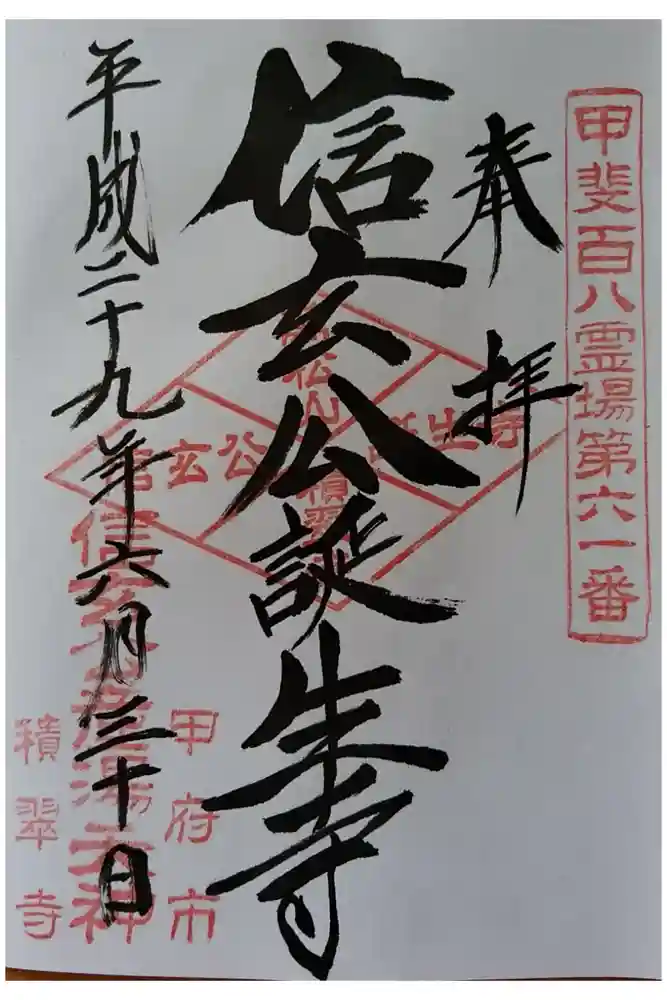 甲斐百八霊場第六一番
奉拝
信玄公誕生寺
平成二十九年六月三十日
信玄公
誕生寺
甲府市
積翠寺